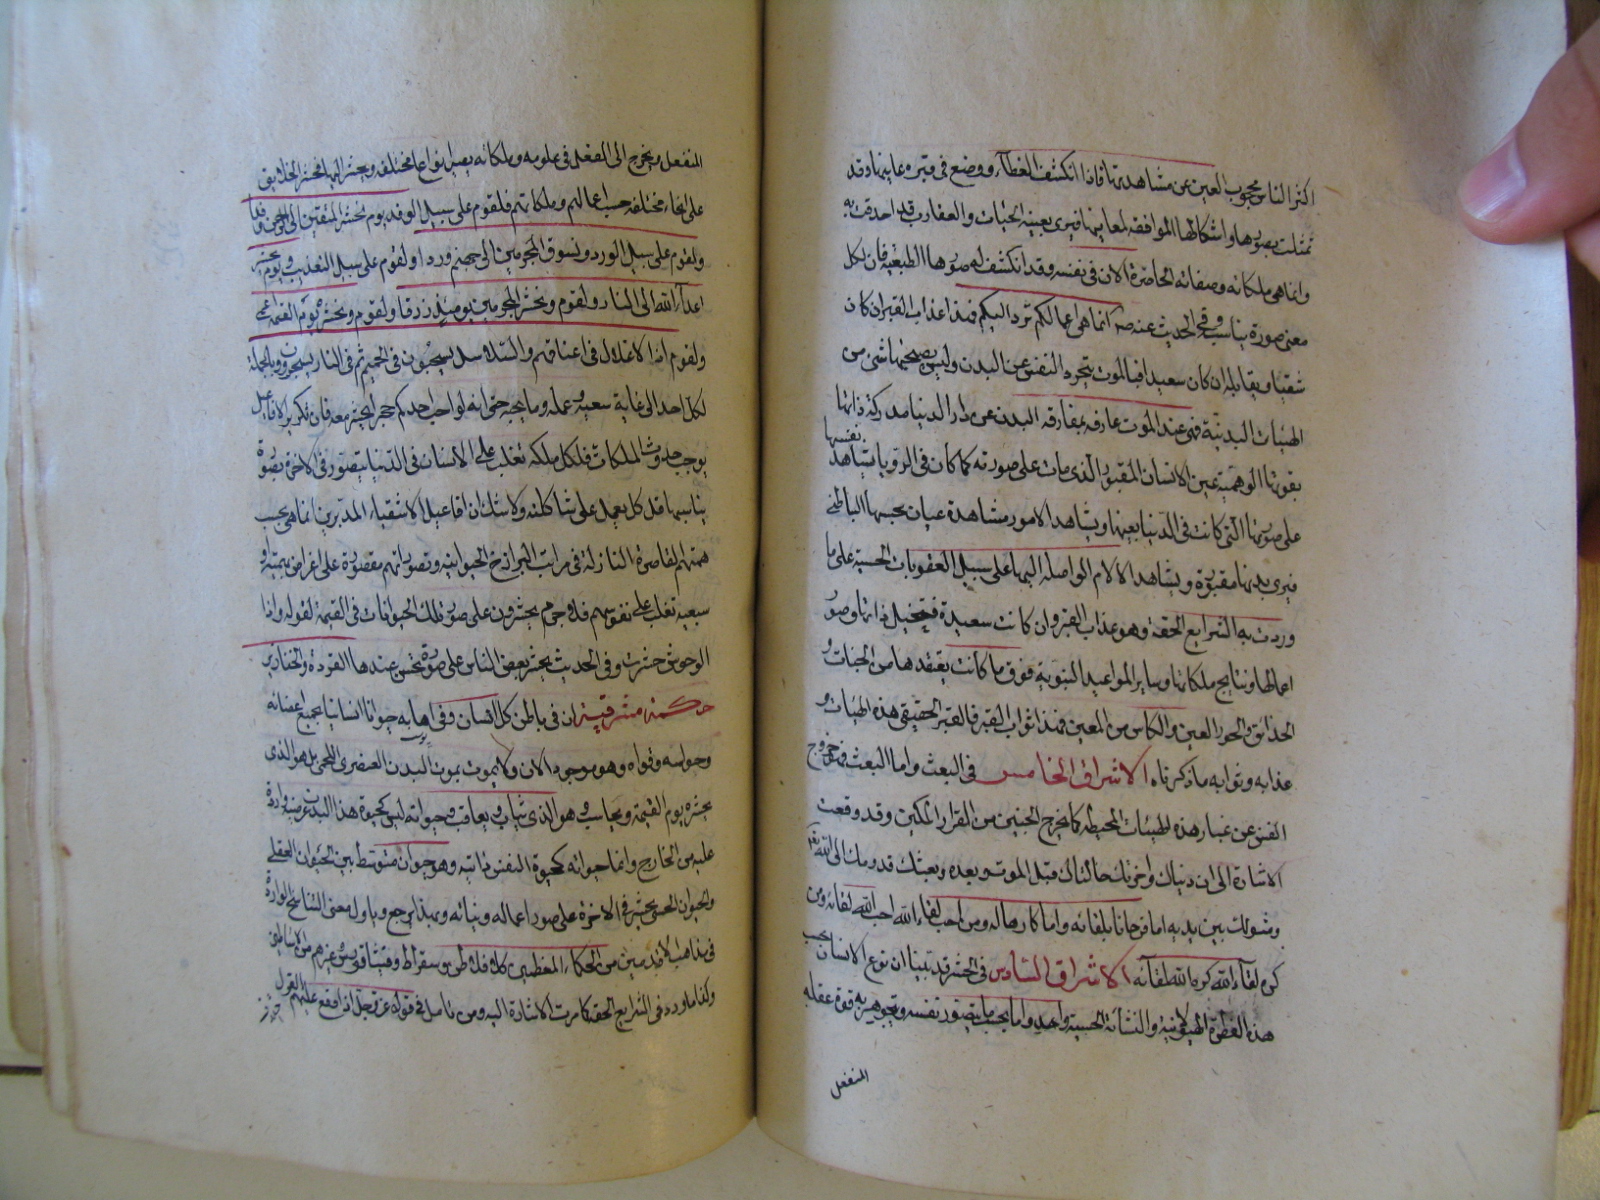 اكثر الناس محجوب العين عن مشاهدتها فاذا انكشف الغطاء ووضع فى قبره عاينها وقد
تمثلت بصورها واشكالها الموافقة لمعاينها فيرى بعينه الحيات والعقارب قد احدقت به
وانما هى ملكاته وصفاته الحاضرة الان فى نفسه وقد انكشف له صورها الطبيعية فان لكل
معنى صورة يناسبه وفى الحديث عنه صم انما هى اعمالكم ترد اليكم فهذا عذاب القبر ان كان
شقيا ويقابله ان كان سعيدا فبالموت يتجرد النفس عن البدن وليس يصحبها شئ من
الهيئات البدنية فهى عند الموت عارفة بمفارقة البدن عن دار الدنيا مدركة ذاتها
بقوتها الوهمية عين الانسان المقبور الذى مات على صورته كما كان فى الرؤيا يشاهد نفسها
على صورتها التى كانت فى الدنيا بعينها ويشاهد الامور مشاهدة عيان بحسها الباطنى
فيرى بدنها مقبورة ويشاهد الالام الواصلة اليها على سبيل العقوبات الحسية على ما
وردت به الشرايع الحقة وهو عذاب القبر وان كانت سعيدة فتتخيل ذاتها وصور
اعمالها ونتايج ملكاتها وساير المواعيد النبوية فوق ما كانت يعتقدها من الجنات و
الحدائق والحور العين والكاس من المعين فهذا ثواب القبر فالقبر الحقيقى هذه الهيئات و
عذابه وثوابه ما ذكرناه الاشراق الخامس فى البعث واما البعث فهو خروج
النفس عن غبار هذه الهيئات المحيطة كما يخرج الجنين من القرار المكين وقد وقعت
الاشارة الى ان دنياك واخرتك حالتاك قبل الموت وبعده وبعثك قدومك الى الله تع
ومثولك بين يديه اما فرحانا بلقائه واما كارها له ومن احب لقاء الله احب الله لقائه ومن
كره لقاء الله كره الله لقائه الاشراق السادس فى الحشر قد تبينا ان نوع الانسان بحسب
هذه الفطرة الهيولانية والنشأة الحسية واحد واما بحسب ما يتصور نفسه ويتجوهر به قوة عقله
المنفعل
المنفعل ويخرج الى الفعل فى علومه وملكاته يصير انواعا مختلفة ويحشر اليها فحشر الخلايق
على انحاء مختلفة حسب اعمالهم وملكاتهم فلقوم على سبيل الوفد يوم نحشر المتقين الى الرحمن وفدا
ولقوم على سبيل الورد ونسوق المجرمين الى جهنم وردا ولقوم على سبيل التعذيب ويوم يحشر
اعداء الله الى النار ولقوم ونحشر المجرمين يومئذ زرقا ولقوم ونحشره يوم القيمة اعمى
ولقوم اذا الاغلال فى اعناقهم والسلاسل يسحبون فى الحميم ثم فى النار يسجرون وبالجملة
لكل احد الى غاية سعيه وعمله وما يحبه حتى انه لو احب احدكم حجرا يحشر معه فان تكرير الافاعيل
يوجب حدوث الملكات فلكل ملكة تغلب على الانسان فى الدنيا يتصور فى الاخرة بصورة
يناسبها قل كل يعمل على شاكلته ولا شك ان افاعيل الاشقياء المدبرين انما هى بحسب
هممهم القاصرة النازلة فى مراتب البرازخ الحيوانية وتصوراتهم مقصورة على اغراض بهيمية او
سبعية تغلب على نفوسهم فلا جرم يحشرون على صور تلك الحيوانات فى القيمة لقوله واذا
الوحوش حشرت وفى الحديث يحشر بعض الناس على صورة تحسن عندها القردة والخنازير
حكمة مشرقية ان فى باطن كل انسان وفى اهابه حيوانا انسانيا بجميع اعضائه
وحواسه وقواه وهو موجود الان ولا يموت بموت البدن العنصرى اللحمى بل هو الذى
يحشر يوم القيمة ويحاسب وهو الذى يثاب ويعاقب وحيوته ليس كحيوة هذا البدن عرضية واردة
عليه من الخارج وانما حيوته كحيوة النفس ذاتية وهو حيوان متوسط بين الحيوان العقلى
والحيوان الحسى يحشر فى الاخرة على صور اعماله ونياته وبهذا يرجع وياول معنى التناسخ الواردة
فى مذاهب الاقدمين من الحكماء المعظمين كافلاطن وسقراط وفيثاغورس وغيرهم من الاساطين
وكذا ما ورد فى الشرايع الحقة كما مرت الاشارة اليه ومن تامل فى قوله عز وجل اذا وقع القول عليهم